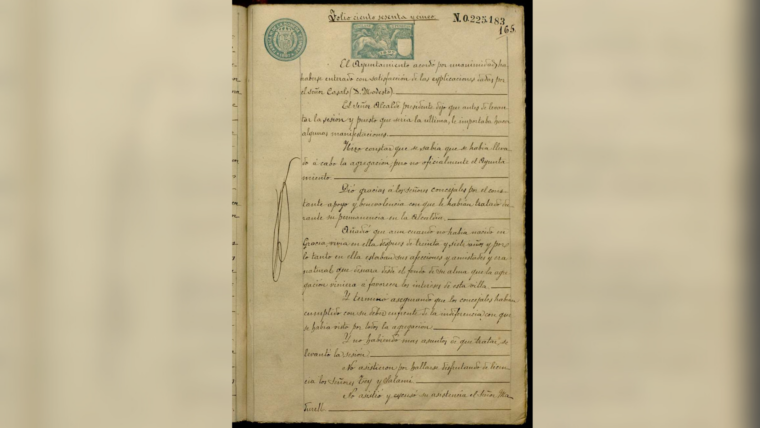 Folio ciento sesenta y cinco
N. 0.225.183
165.
El Ayuntamiento acordó por unanimidad
haberse enterado con satisfacción de las explicaciones dadas por
el señor Casals (D. Modesto).
El Señor Alcalde presidente dijo que antes de levan
tar la sesión y puesto que sería la última, le importaba hacer
algunas manifestaciones.
Hizo constar que se sabía que se había lleva
do á cabo la agregación, pero no oficialmente el Ayunta
miento.
Dió gracias á los señores concejales por el cons
tante apoyo y benevolencia con que le habían tratado du
rante su permanencia en la Alcaldía.
Añadió que aun cuando no había nacido en
Gracia, vivía en ella despues de treinta y siete años y por
lo tanto en ella estaban sus afecciones y amistades y era
natural que deseara desde el fondo de su alma que la agre
gación viniera a favorecer los intereses de esta villa.
Y terminó asegurando que los concejales habían
cumplido con su deber enfrente de la indiferencia con que
se había visto por todos la agregación.
Y no habiendo mas asuntos de que tratar, se
levantó la sesión.
No asistieron por hallarse disfrutando de licen
cia los señores Rey y
No asistió y escusó su asistencia el Señor